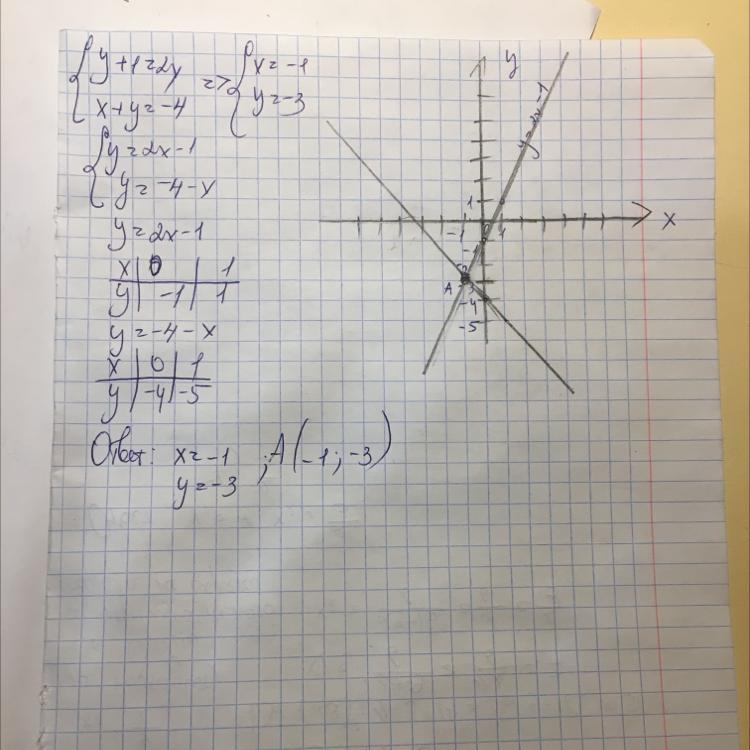 { y+1=2y => { x=-1
x+y=-4 y=-3
{ y=2x-1
y=-4-x
y=2x-1
x | 0 | 1
y | -1 | 1
y=-4-x
x | 0 | 1
y | -4 | -5
Ответ: x=-1 ; A(-1; -3)
y=-3
y
y=2x-1
1
x
-1 1
-1
A -3
-4
-5